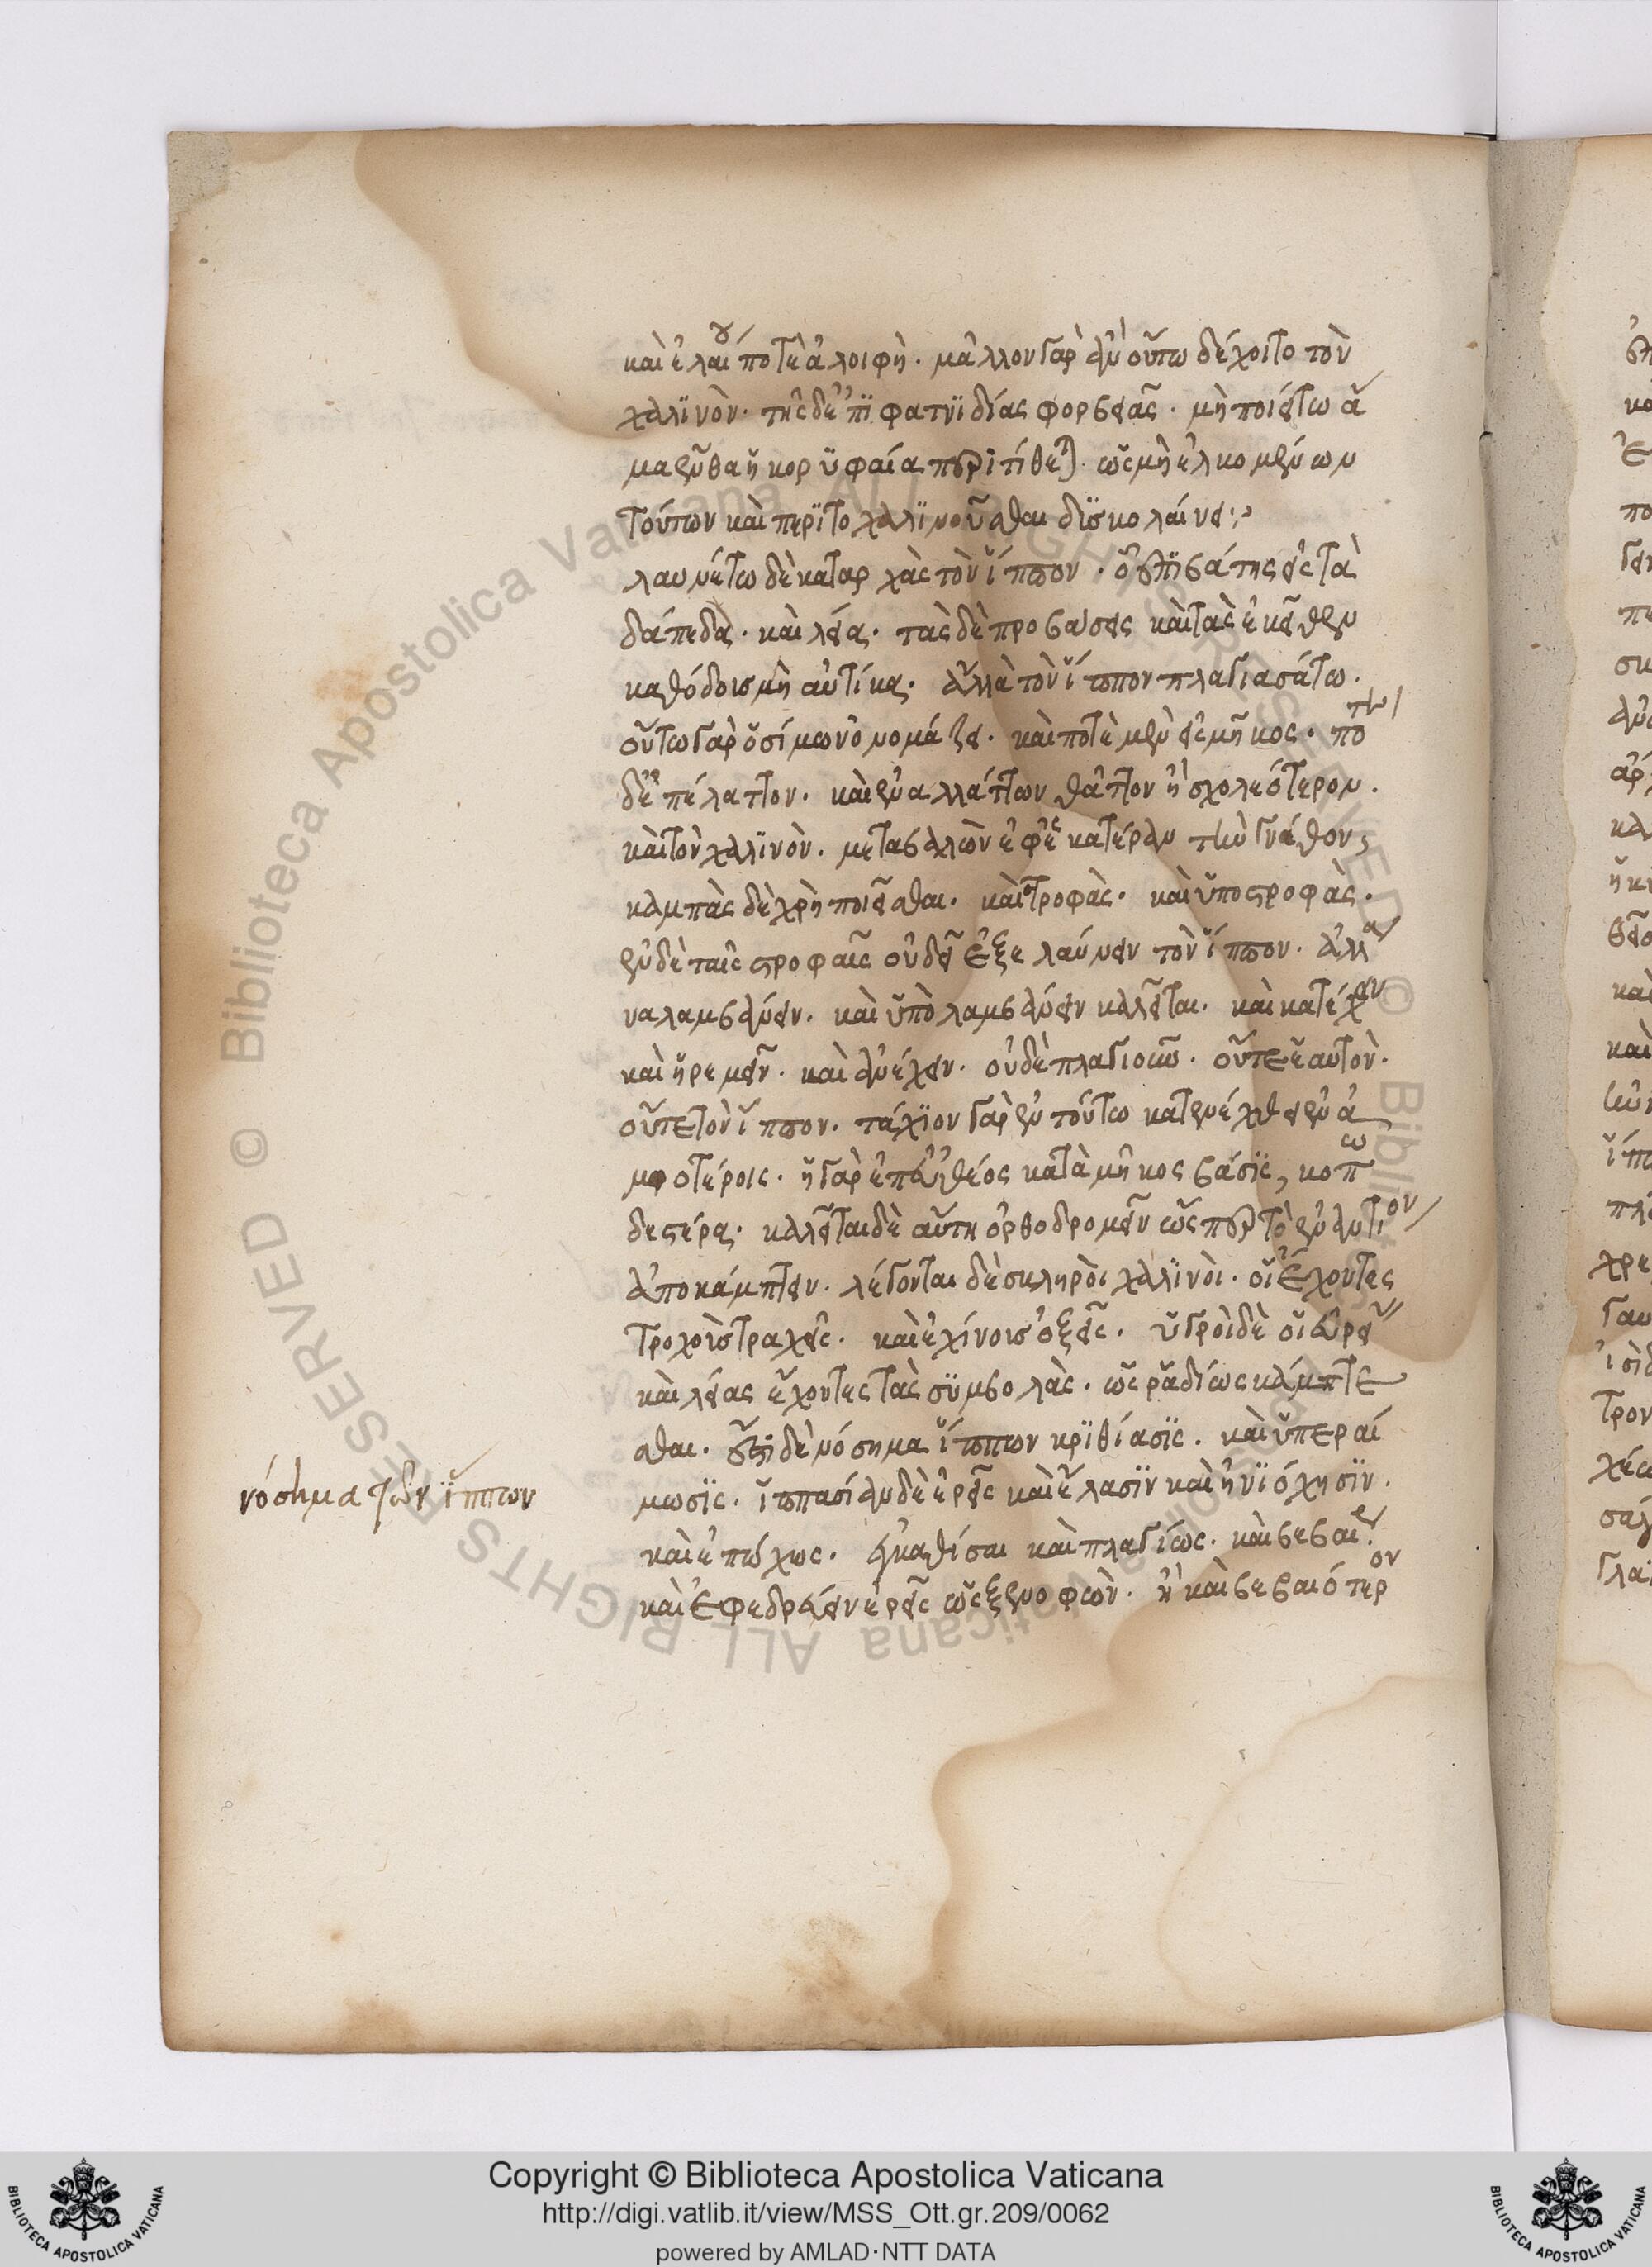 καὶ ἐλαίου ποτὲ ἀλοιφὴ. μᾶλλον γὰρ ἂν οὕτω δέχοιτο τὸν
χαλϊνὸν. τῆς δὲ ἐπὶ φατνϊδίας φορβειᾶς. μὴ ποιείτω ἅ
μα ἔνθα ἡ κορϋφαία περιτίθεται. ὡς μὴ ἑλκομένων
τούτων καὶ περὶ τὸ χαλϊνοῦσθαι δϋσκολαίνει:
λαυνέτω δὲ καταρχὰς τὸν ἵππον. ὁ ἐπϊβάτης εἰς τὰ
δάπεδα. καὶ λεῖα. τὰς δὲ προσβάσεις καὶ τὰς ἐκεῖθεν
καθόδοις μὴ αὐτίκα. ἀλλὰ τὸν ἵππον πλαγιασάτω.
οὕτω γὰρ ὁ σίμων ὀνομάζει. καὶ ποτὲ μὲν εἰς μῆκος. ποτὲ
δὲ ἐπ' ἔλαττον. καὶ ἐναλλάττων θᾶττον ἢ σχολεότερον.
καὶ τὸν χαλϊνὸν. μεταβαλὼν ἐφ' ἑκατέραν τὴν γνάθον,
καμπὰς δὲ χρὴ ποιεῖσθαι. καὶ στροφὰς. καὶ ὑποστροφὰς.
ἐν δὲ ταῖς στροφαῖς οὐ δεῖ ἐξελαύνειν τὸν ἵππον. ἀλλ' ἀ
ναλαμβάνειν. καὶ ὑπολαμβάνειν καλεῖται. καὶ κατέχειν
καὶ ἠρεμεῖν. καὶ ἀνέχειν. οὐδὲ πλαγιοῦν. οὔτε ἑαυτὸν.
οὔτε τὸν ἵππον. τάχϊον γὰρ ἐν τούτω κατενέχθειεν ἀ
μφοτέροις. ἡ γὰρ ἐπ' εὐθέος κατὰ μῆκος βάσϊς, κοπω
δεστέρα. καλεῖται δὲ αὕτη ὀρθοδρομεῖν ὥσπερ τὸ ἐναντίον
ἀποκάμπτειν. λέγονται δὲ σκληροὶ χαλϊνοὶ. οἱ ἔχοντες
τροχοὶς τραχεῖς. καὶ ἐχίνοις ὀξεῖς. ὑγροὶ δὲ οἱ εὐρεῖς
καὶ λείας ἔχοντες τὰς σϋμβολὰς. ὡς ῥᾳδίως κάμπτε
σθαι. ἔστι δὲ νόσημα ἵππων κρϊθίασϊς. καὶ ὑπεραί
μωσϊς. ἱππασίαν δὲ ἐρεῖς καὶ ἔλασϊν καὶ ἡνϊόχησϊν.
καὶ ἐπόχως. ἐγκαθίσαι καὶ πλαγίως. καὶ βεβαίως.
καὶ ἐφεδρεύειν ἐρεῖς ὡς ξενοφῶν. ἢ καὶ βεβαιότερον
νόσημα τῶν ἵππων
Copyright © Biblioteca Apostolica Vaticana
http://digi.vatlib.it/view/MSS_Ott.gr.209/0062
powered by AMLAD·NTT DATA